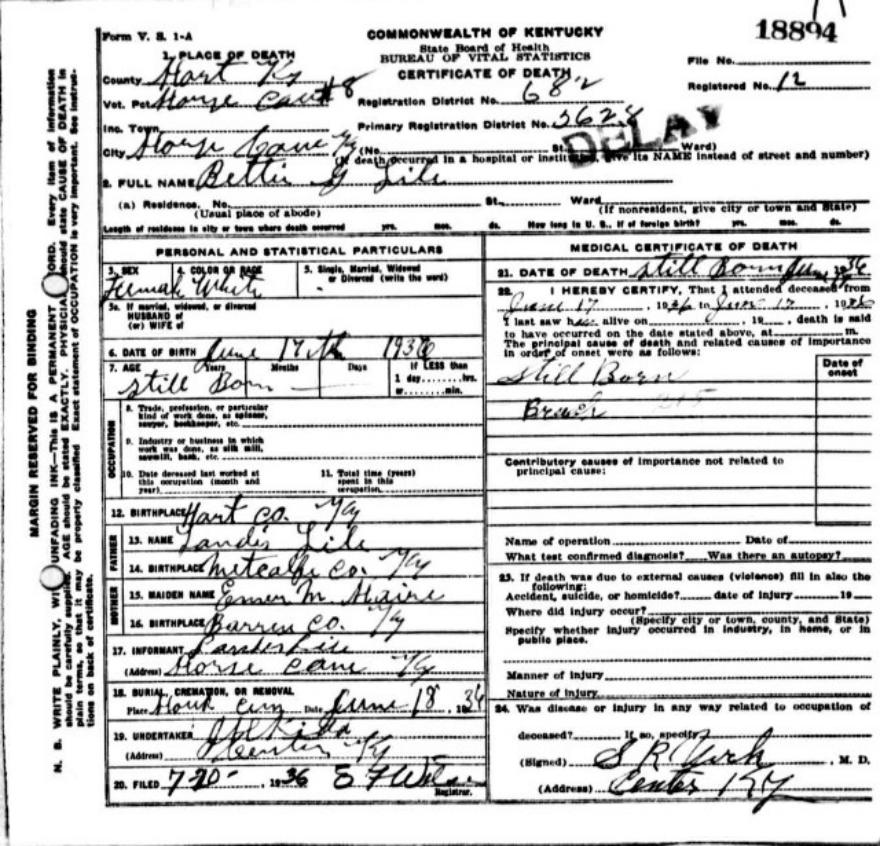 Form V. S. 1-A
COMMONWEALTH OF KENTUCKY
State Board of Health
BUREAU OF VITAL STATISTICS
CERTIFICATE OF DEATH
18894
File No.
Registered No. 12
1. PLACE OF DEATH
County Hart Ky
Vot. Pct. Horse Cave #8
Registration District No. 682
Inc. Town
Primary Registration District No. 3628
DELAY
City Horse Cave Ky (No. St. Ward)
(If death occurred in a hospital or institution, give its NAME instead of street and number)
2. FULL NAME Bettie G Lile
(a) Residence. No. St., Ward
(Usual place of abode) (If nonresident, give city or town and State)
Length of residence in city or town where death occurred yrs. mos. ds. How long in U. S., if of foreign birth? yrs. mos. ds.
PERSONAL AND STATISTICAL PARTICULARS
3. SEX 4. COLOR OR RACE 5. Single, Married, Widowed or Divorced (write the word)
Female White
5a. If married, widowed, or divorced
HUSBAND of
(or) WIFE of
6. DATE OF BIRTH June 17th 1936
7. AGE Years Months Days If LESS than
1 day......hrs.
or......min.
Still Born
OCCUPATION
8. Trade, profession, or particular
kind of work done, as spinner,
sawyer, bookkeeper, etc.
9. Industry or business in which
work was done, as silk mill,
sawmill, bank, etc.
10. Date deceased last worked at
this occupation (month and
year)
11. Total time (years)
spent in this
occupation
12. BIRTHPLACE Hart Co. Ky
FATHER
13. NAME Landis Lile
14. BIRTHPLACE Metcalfe Co. Ky
MOTHER
15. MAIDEN NAME M.
16. BIRTHPLACE Barren Co. Ky
17. INFORMANT Landis Lile
(Address) Horse Cave Ky
18. BURIAL, CREMATION, OR REMOVAL
Place Date June 18, 1936
19. UNDERTAKER
(Address) Center Ky
20. FILED 7-20-, 1936
Registrar.
MEDICAL CERTIFICATE OF DEATH
21. DATE OF DEATH Still Born June 1936
22. I HEREBY CERTIFY, That I attended deceased from
June 17, 1936 to June 17, 1936
I last saw h alive on, 19, death is said
to have occurred on the date stated above, at m.
The principal cause of death and related causes of importance
in order of onset were as follows:
Date of
onset
Still Born
Breech
Contributory causes of importance not related to
principal cause:
Name of operation Date of
What test confirmed diagnosis? Was there an autopsy?
23. If death was due to external causes (violence) fill in also the
following:
Accident, suicide, or homicide? date of injury 19
Where did injury occur?
(Specify city or town, county, and State)
Specify whether injury occurred in industry, in home, or in
public place.
Manner of injury
Nature of injury
24. Was disease or injury in any way related to occupation of
deceased? If so, specify
(Signed) S R York, M. D.
(Address) Center Ky
MARGIN RESERVED FOR BINDING
N. B. WRITE PLAINLY, UNFADING INK—THIS IS A PERMANENT Every item of information
should be carefully supplied. AGE should be stated EXACTLY. should state CAUSE OF DEATH in
plain terms, so that it may be properly classified. Exact statement of OCCUPATION is very important. See instruc-
tions on back of certificate.